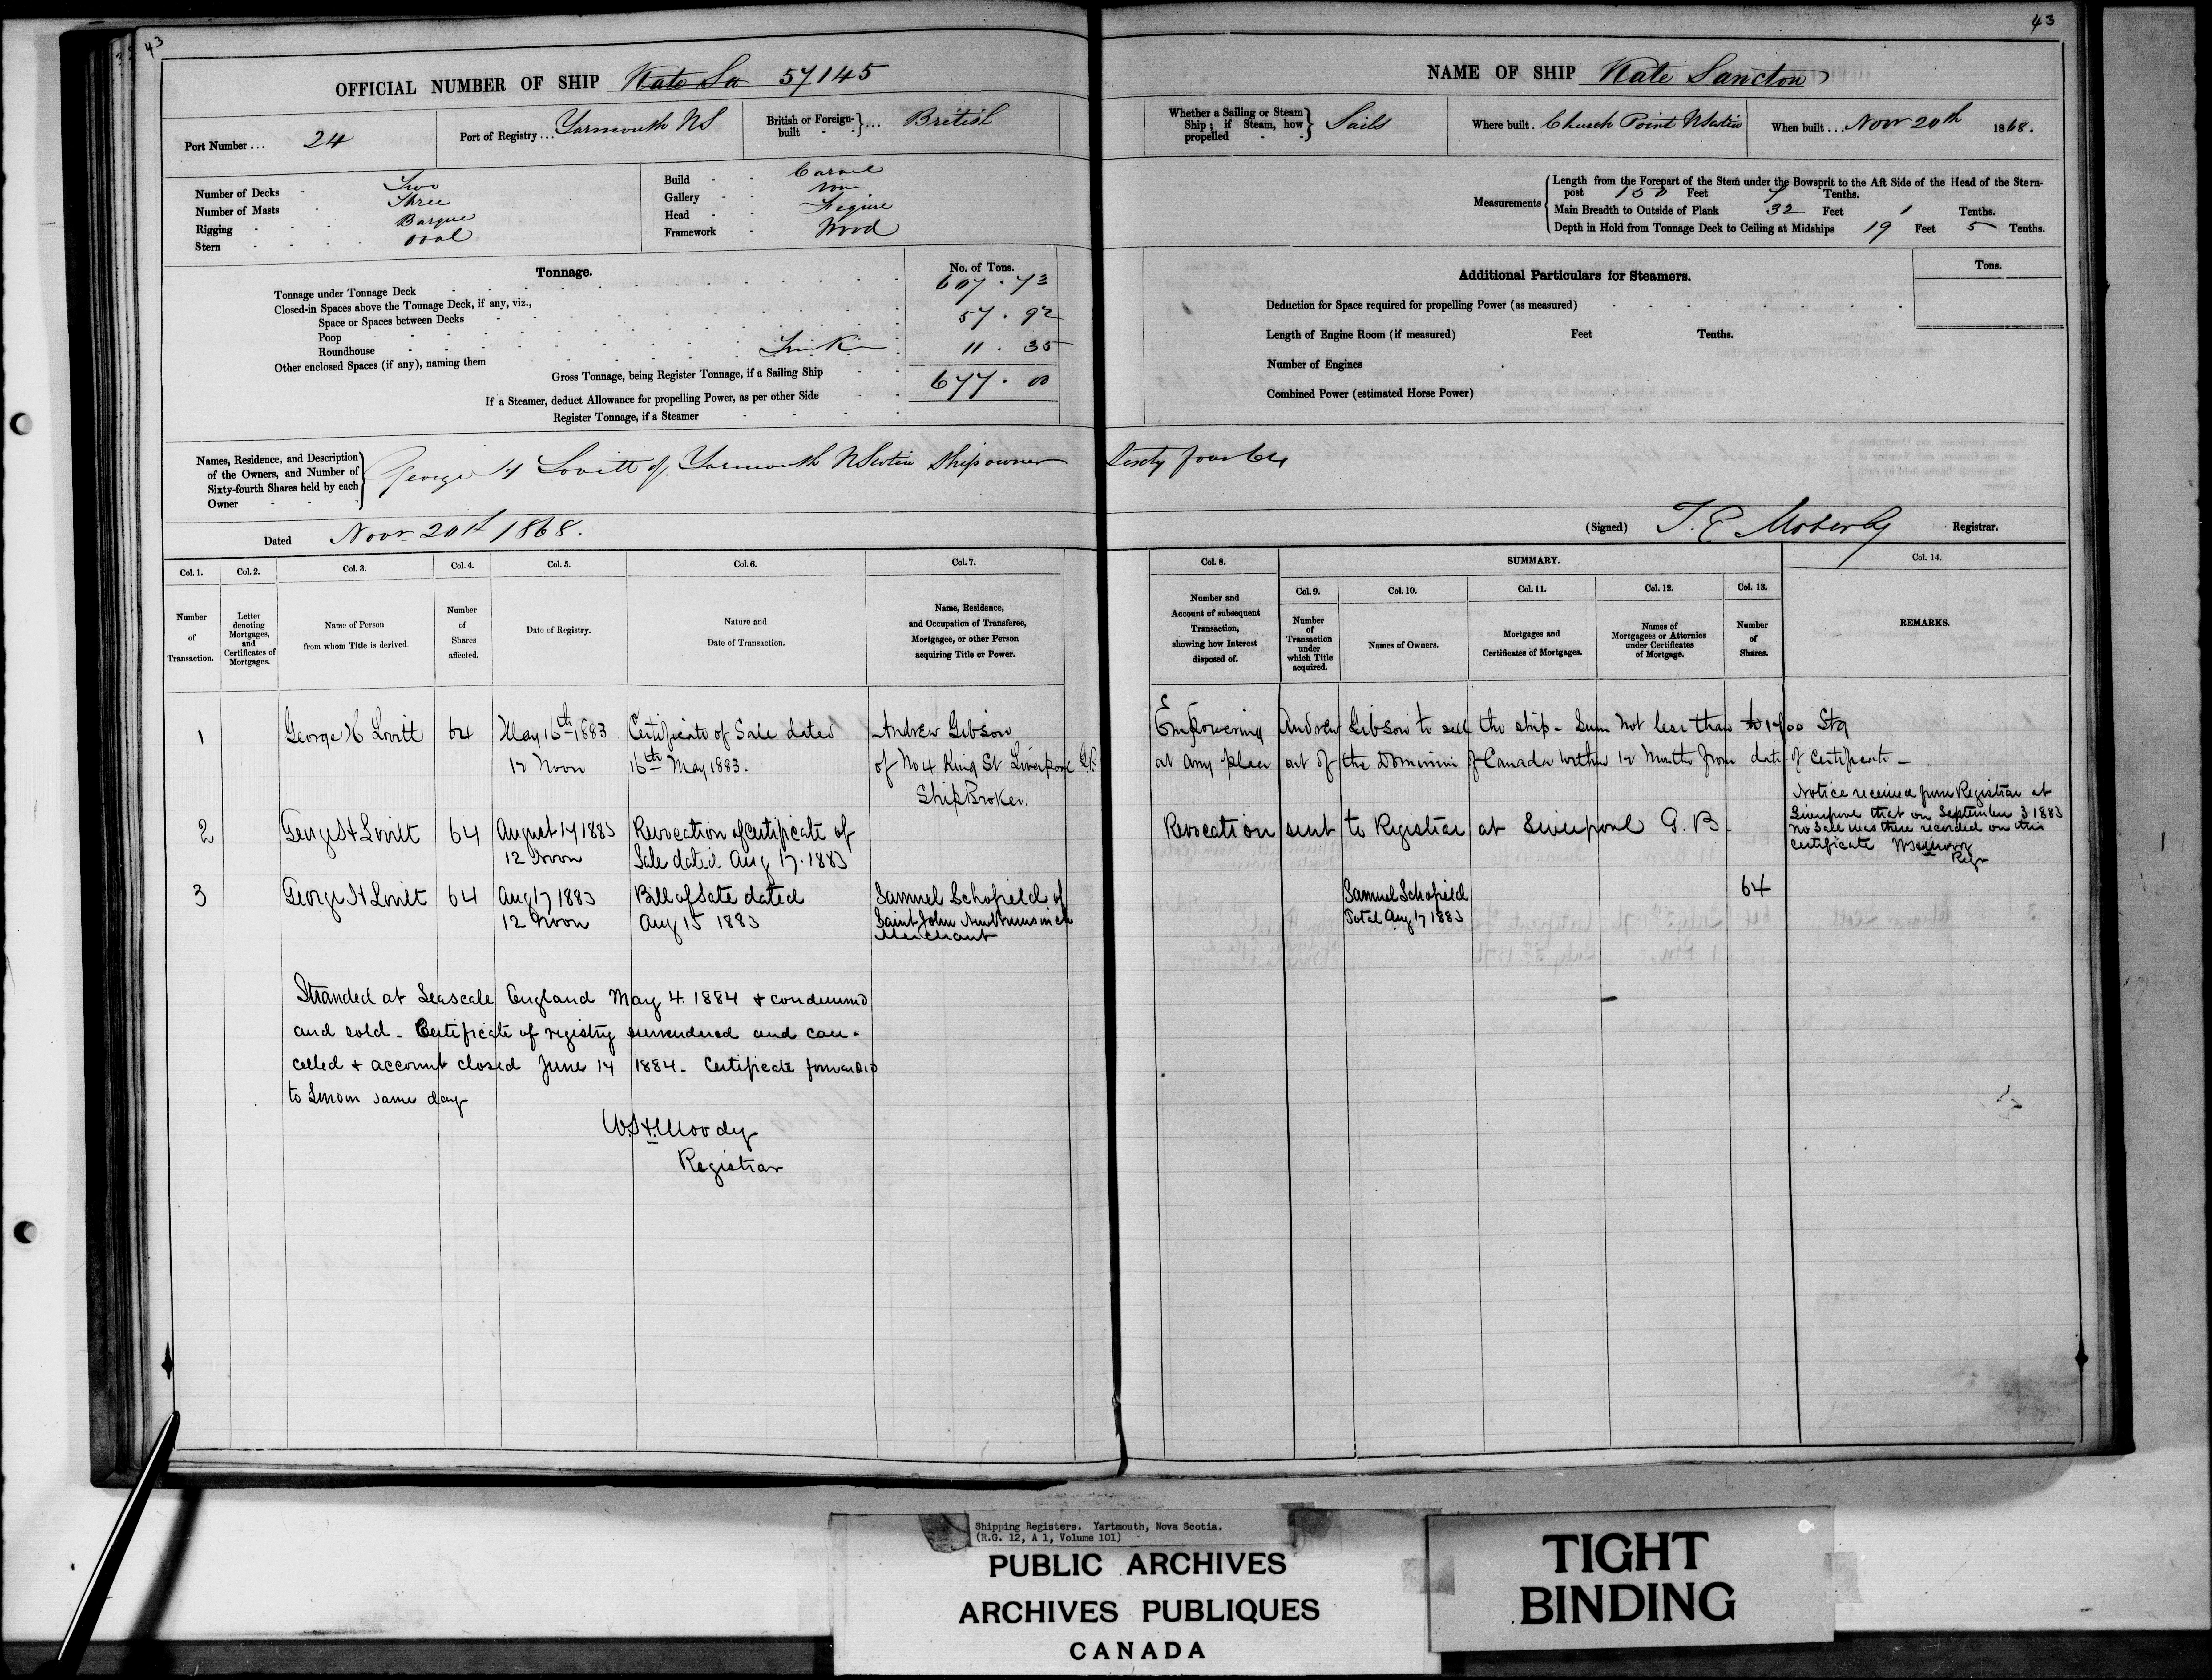 43
OFFICIAL NUMBER OF SHIP Kate Sa 57145
Port Number ... 24
Port of Registry ... Yarmouth NS
British or Foreign-built ... British
Number of Decks Two
Number of Masts Three
Rigging Barque
Stern Oval
Build Carvel
Gallery None
Head Figure
Framework Wood
Tonnage. No. of Tons.
Tonnage under Tonnage Deck 607.73
Closed-in Spaces above the Tonnage Deck, if any, viz.,
Space or Spaces between Decks
Poop 57.92
Roundhouse
Other enclosed Spaces (if any), naming them 11.35
Gross Tonnage, being Register Tonnage, if a Sailing Ship 677.00
If a Steamer, deduct Allowance for propelling Power, as per other Side
Register Tonnage, if a Steamer
Names, Residence, and Description of the Owners, and Number of Sixty-fourth Shares held by each Owner
George H Lovitt of Yarmouth NScotia Ship owner
Dated Novr 20th 1868.
Col. 1. Col. 2. Col. 3. Col. 4. Col. 5. Col. 6. Col. 7.
Number of Transaction.
Letter denoting Mortgages, and Certificates of Mortgages.
Name of Person from whom Title is derived.
Number of Shares affected.
Date of Registry.
Nature and Date of Transaction.
Name, Residence, and Occupation of Transferee, Mortgagee, or other Person acquiring Title or Power.
1 George H Lovitt 64 May 16th 1883 Certificate of Sale dated Andrew Gibson
12 Noon 16th May 1883. of No 4 King St Liverpool G.B.
Ship Broker.
2 George H Lovitt 64 August 17 1883 Revocation of Certificate of
12 Noon Sale dated Aug 17. 1883
3 George H Lovitt 64 Aug 17 1883 Bill of Sale dated Samuel Schofield of
12 Noon Aug 15 1883 Saint John New Brunswick
Merchant
Stranded at Seascale England May 4. 1884 + condemned
and sold - Certificate of registry surrendered and can-
celled + account closed June 14 1884 - Certificate forwarded
to London same day
W S H Moody
Registrar
43
NAME OF SHIP Kate Sancton
Whether a Sailing or Steam Ship; if Steam, how propelled Sails
Where built . Church Point NScotia
When built ... Novr 20th 1868.
Measurements
Length from the Forepart of the Stem under the Bowsprit to the Aft Side of the Head of the Stern-
post 150 Feet 7 Tenths.
Main Breadth to Outside of Plank 32 Feet 1 Tenths.
Depth in Hold from Tonnage Deck to Ceiling at Midships 19 Feet 5 Tenths.
Additional Particulars for Steamers. Tons.
Deduction for Space required for propelling Power (as measured)
Length of Engine Room (if measured) Feet Tenths.
Number of Engines
Combined Power (estimated Horse Power)
Sixty four 64
(Signed) Registrar.
Col. 8. SUMMARY. Col. 14.
Col. 9. Col. 10. Col. 11. Col. 12. Col. 13.
Number and Account of subsequent Transaction, showing how Interest disposed of.
Number of Transaction under which Title acquired.
Names of Owners.
Mortgages and Certificates of Mortgages.
Names of Mortgagees or Attornies under Certificates of Mortgage.
Number of Shares.
REMARKS.
Empowering Andrew Gibson to sell the ship - Sum not less than Stg
at any place out of the Dominion of Canada within 12 Months from date of Certificate -
Revocation sent to Registrar at Liverpool G. B.
Notice received from Registrar at
Liverpool that on September 3 1883
no Sale was there recorded on this
Certificate WSHMoody
Regr
Samuel Schofield 64
Total Aug 17 1883
Shipping Registers. Yartmouth, Nova Scotia.
(R.G. 12, A 1, Volume 101)
PUBLIC ARCHIVES
ARCHIVES PUBLIQUES
CANADA
TIGHT
BINDING